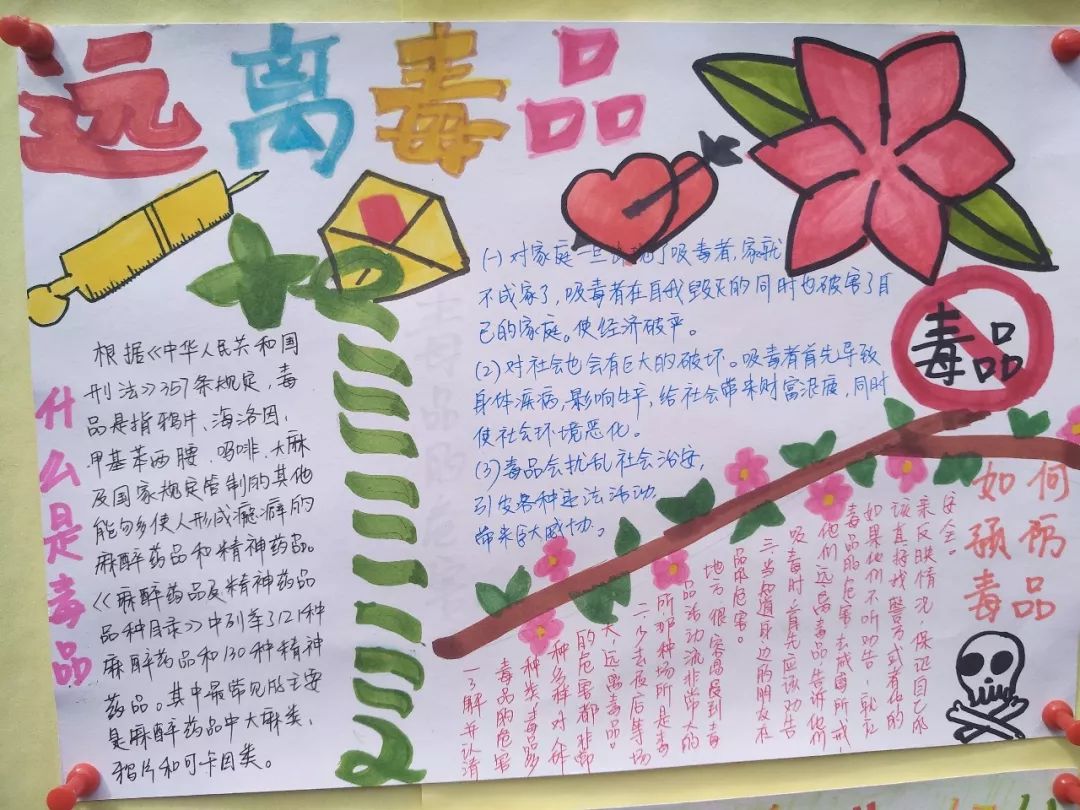 远离毒品
什么是毒品
根据《中华人民共和国
刑法》357条规定,毒
品是指鸦片、海洛因、
甲基苯丙胺、吗啡、大麻
及国家规定管制的其他
能够多使人形成瘾癖的
麻醉药品和精神药品。
《麻醉药品及精神药品
品种目录》中列举了121种
麻醉药品和130种精神
药品。其中最常见的主要
是麻醉药品中大麻类、
鸦片和可卡因类。
(1)对家庭一旦了吸毒者,家就
不成家了,吸毒者在自我毁灭的同时也破害了自
己的家庭。使经济破产。
(2)对社会也会有巨大的破坏。吸毒者首先导致
身体疾病,影响生产,给社会带来财富浪废,同时
使社会环境恶化。
(3)毒品会扰乱社会治安,
引发各种违法活动.
带来巨大威协。
毒品
如何
预防
毒品
一.了解并认清
毒品的危害
种类毒品多
种多样对身体
的危害都非常
大远离毒品。
二.少去夜店等场
所那种场所是毒
品活动流非常大的
地方很容易受到毒
品的危害。
三.当知道身边的朋友在
吸毒时首先应该劝告
他们远离毒品告诉他们
毒品的危害去戒毒所戒,
如果他们不听劝告,就应
该直接找警方或者他的
亲反映情况,保证自己
安全。